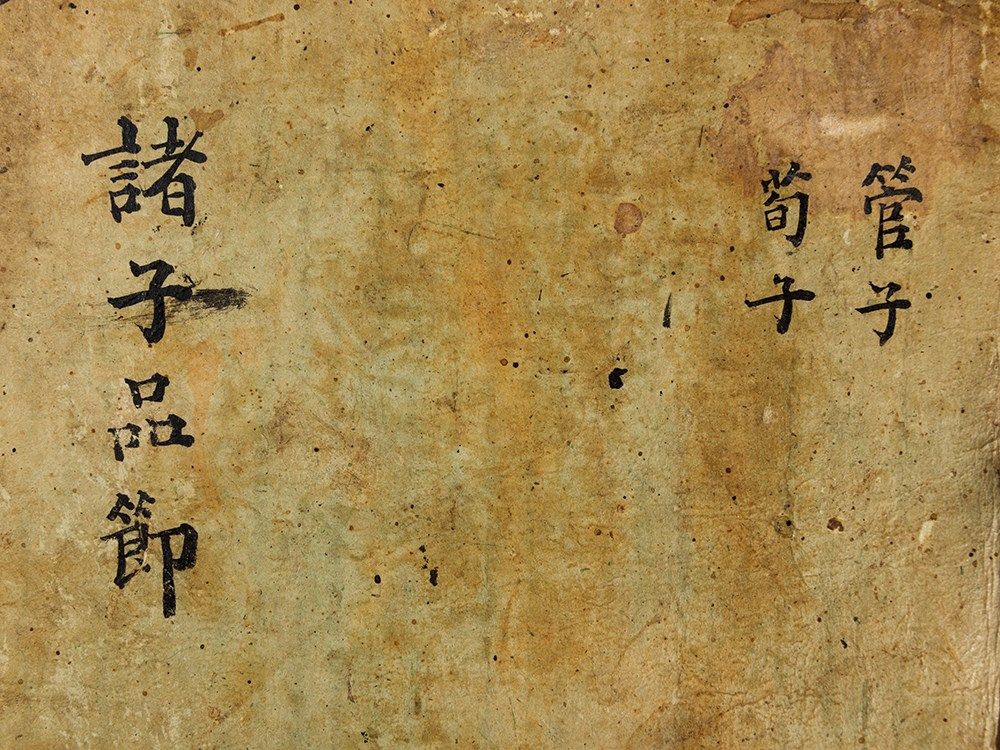 管子
荀子
諸子品節